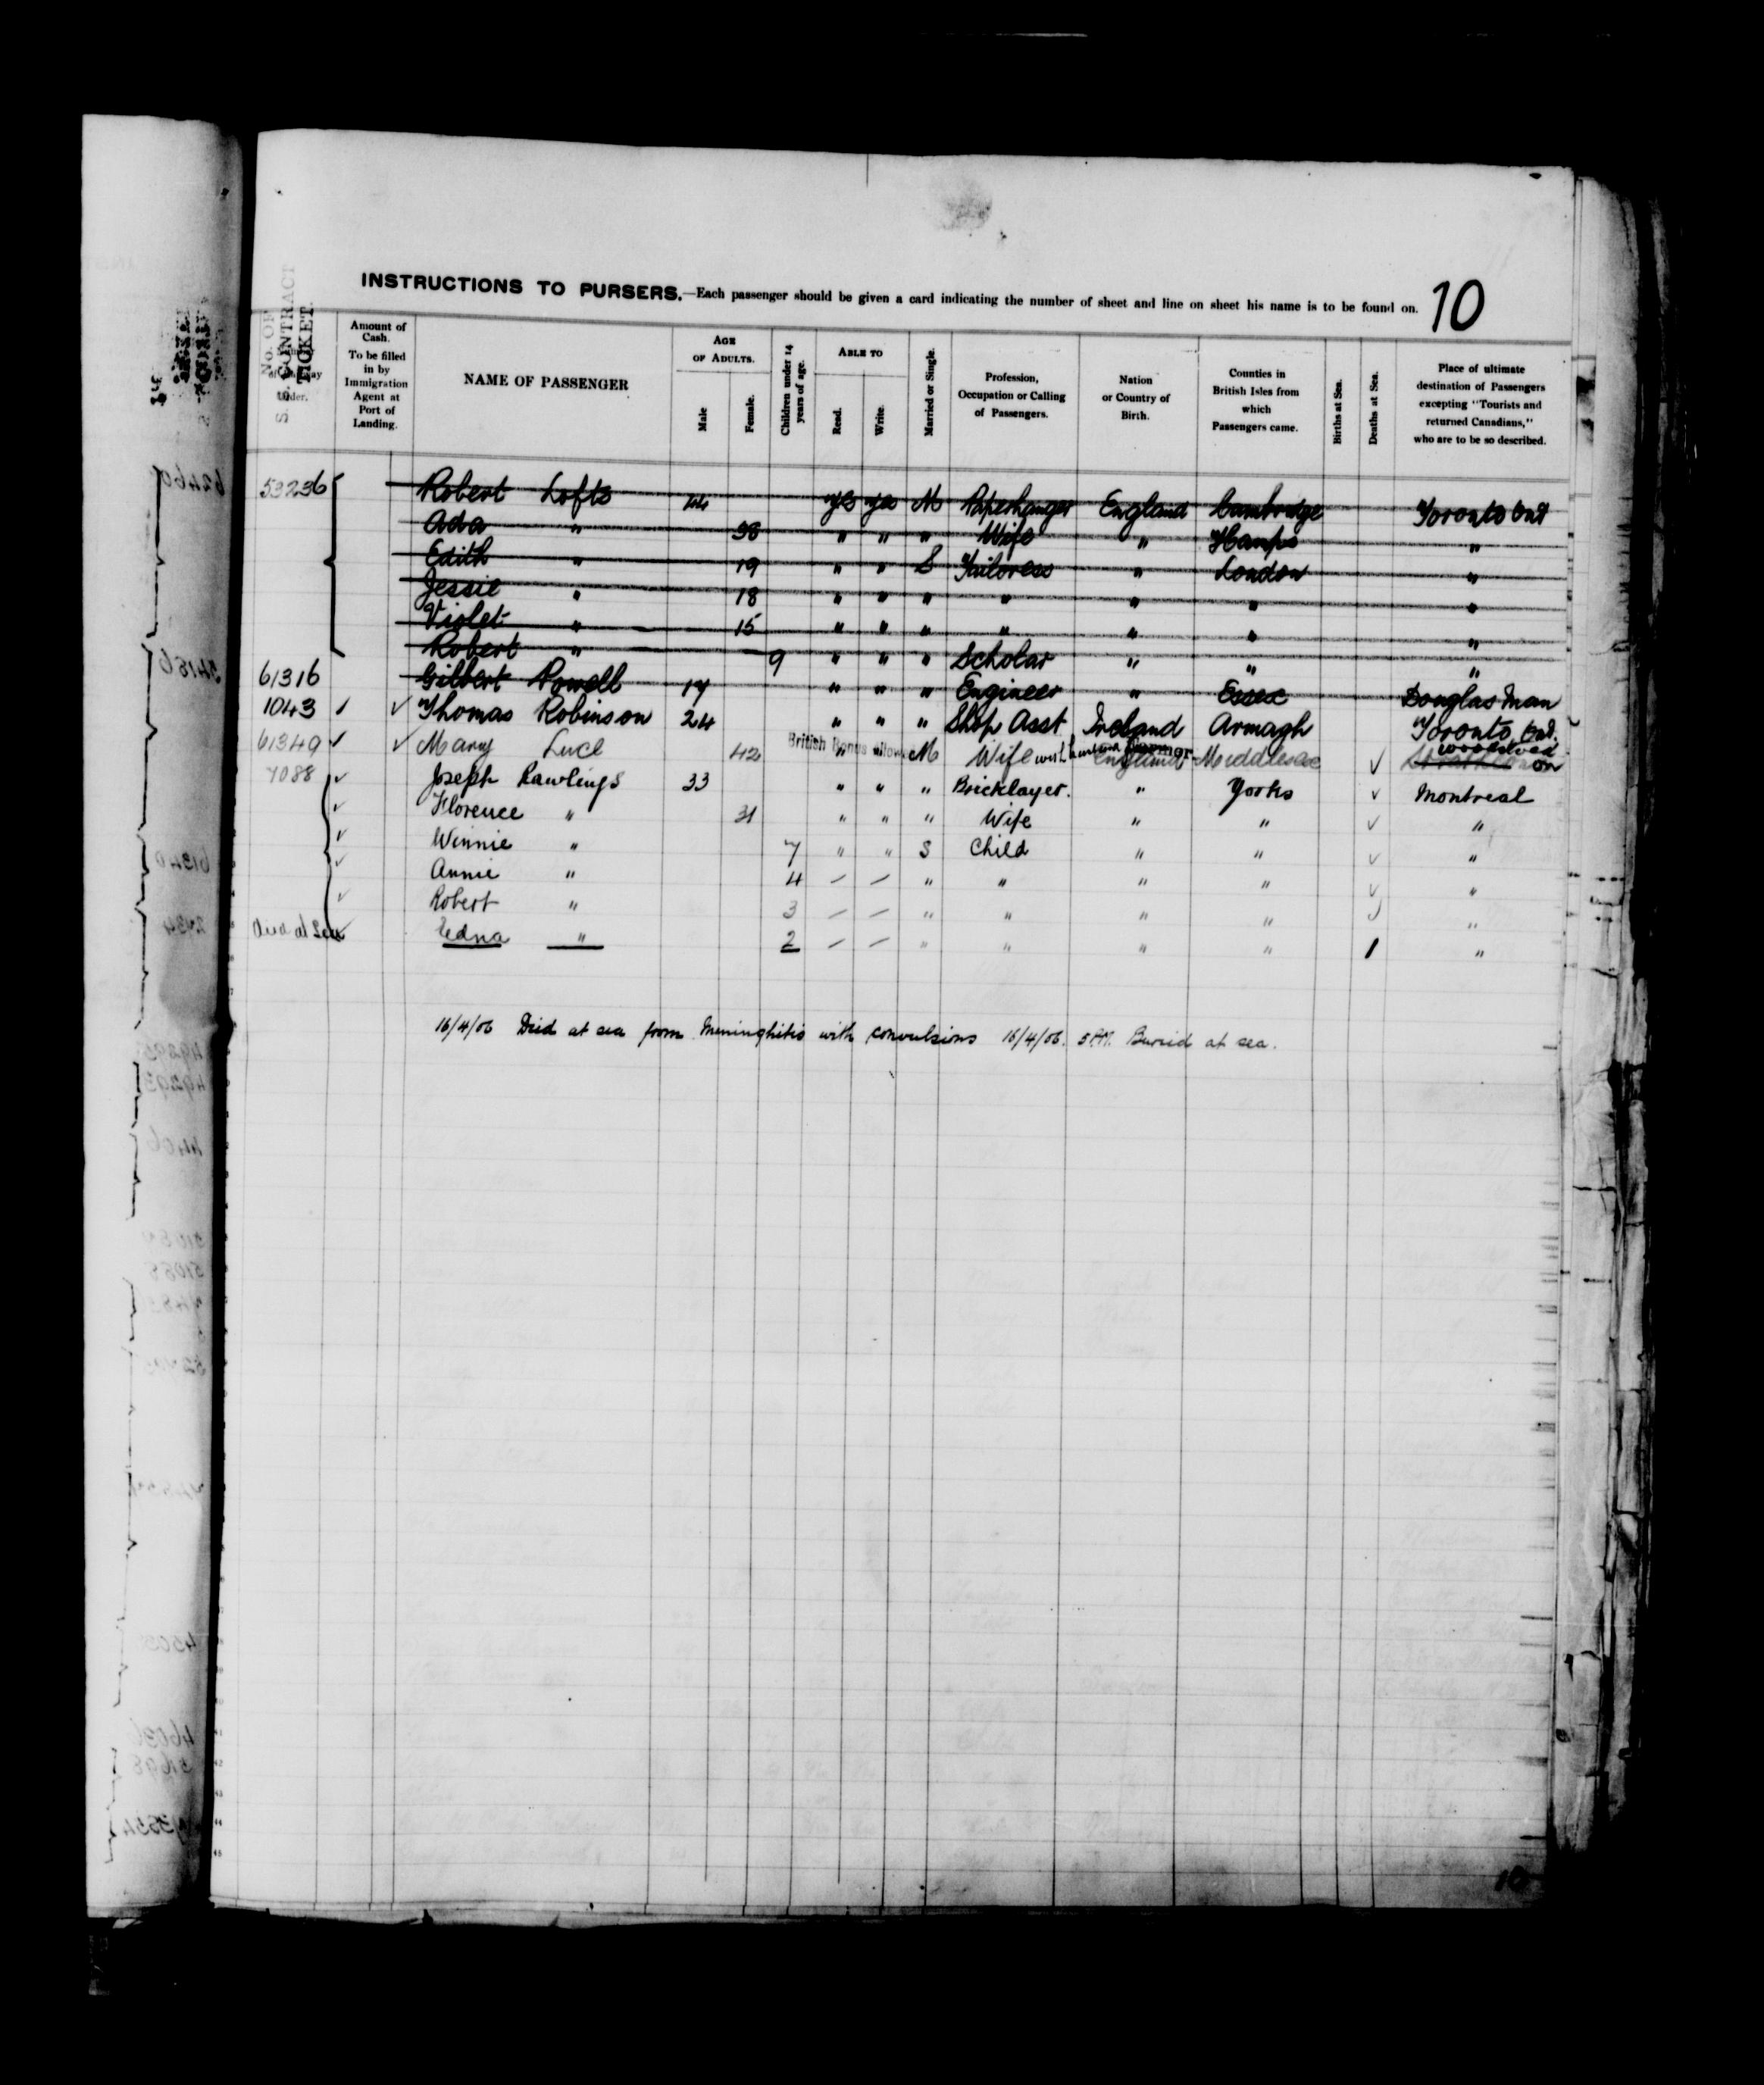 INSTRUCTIONS TO PURSERS.—Each passenger should be given a card indicating the number of sheet and line on sheet his name is to be found on. 10
No. OF S.S. CONTRACT TICKET.
Amount of Cash. To be filled in by Immigration Agent at Port of Landing.
NAME OF PASSENGER
AGE OF ADULTS.
Male
Female.
Children under 14 years of age.
ABLE TO
Read.
Write.
Married or Single.
Profession, Occupation or Calling of Passengers.
Nation or Country of Birth.
Counties in British Isles from which Passengers came.
Births at Sea.
Deaths at Sea.
Place of ultimate destination of Passengers excepting "Tourists and returned Canadians," who are to be so described.
53236 Robert Lofts 44 yes yes M Paperhanger England Cambridge Toronto Ont
Ada " 38 " " " Wife " Hamps "
Edith " 19 " " S Tailoress " London "
Jessie " 18 " " " " " " "
Violet " 15 " " " " " " "
Robert " 9 " " " Scholar " " "
61316 Gilbert Powell 17 " " " Engineer " Essex Douglas Man
1043 ✓ ✓ Thomas Robinson 24 " " " Shop Asst Ireland Armagh Toronto, Ont.
61349 ✓ ✓ Mary Luce 42 British Bonus Allowed M Wife with England Middlesex ✓
7088 ✓ Joseph Rawlings 33 " " " Bricklayer. " Yorks ✓ Montreal
✓ Florence " 31 " " " Wife " " ✓ "
✓ Winnie " 7 " " S Child " " ✓ "
✓ Annie " 4 – – " " " " ✓ "
✓ Robert " 3 – – " " " " ✓ "
Died at Sea ✓ Edna " 2 – – " " " " 1 "
16/4/06 Died at sea from Meninghitis with convulsions 16/4/06. 5 P.M. Buried at sea.
10